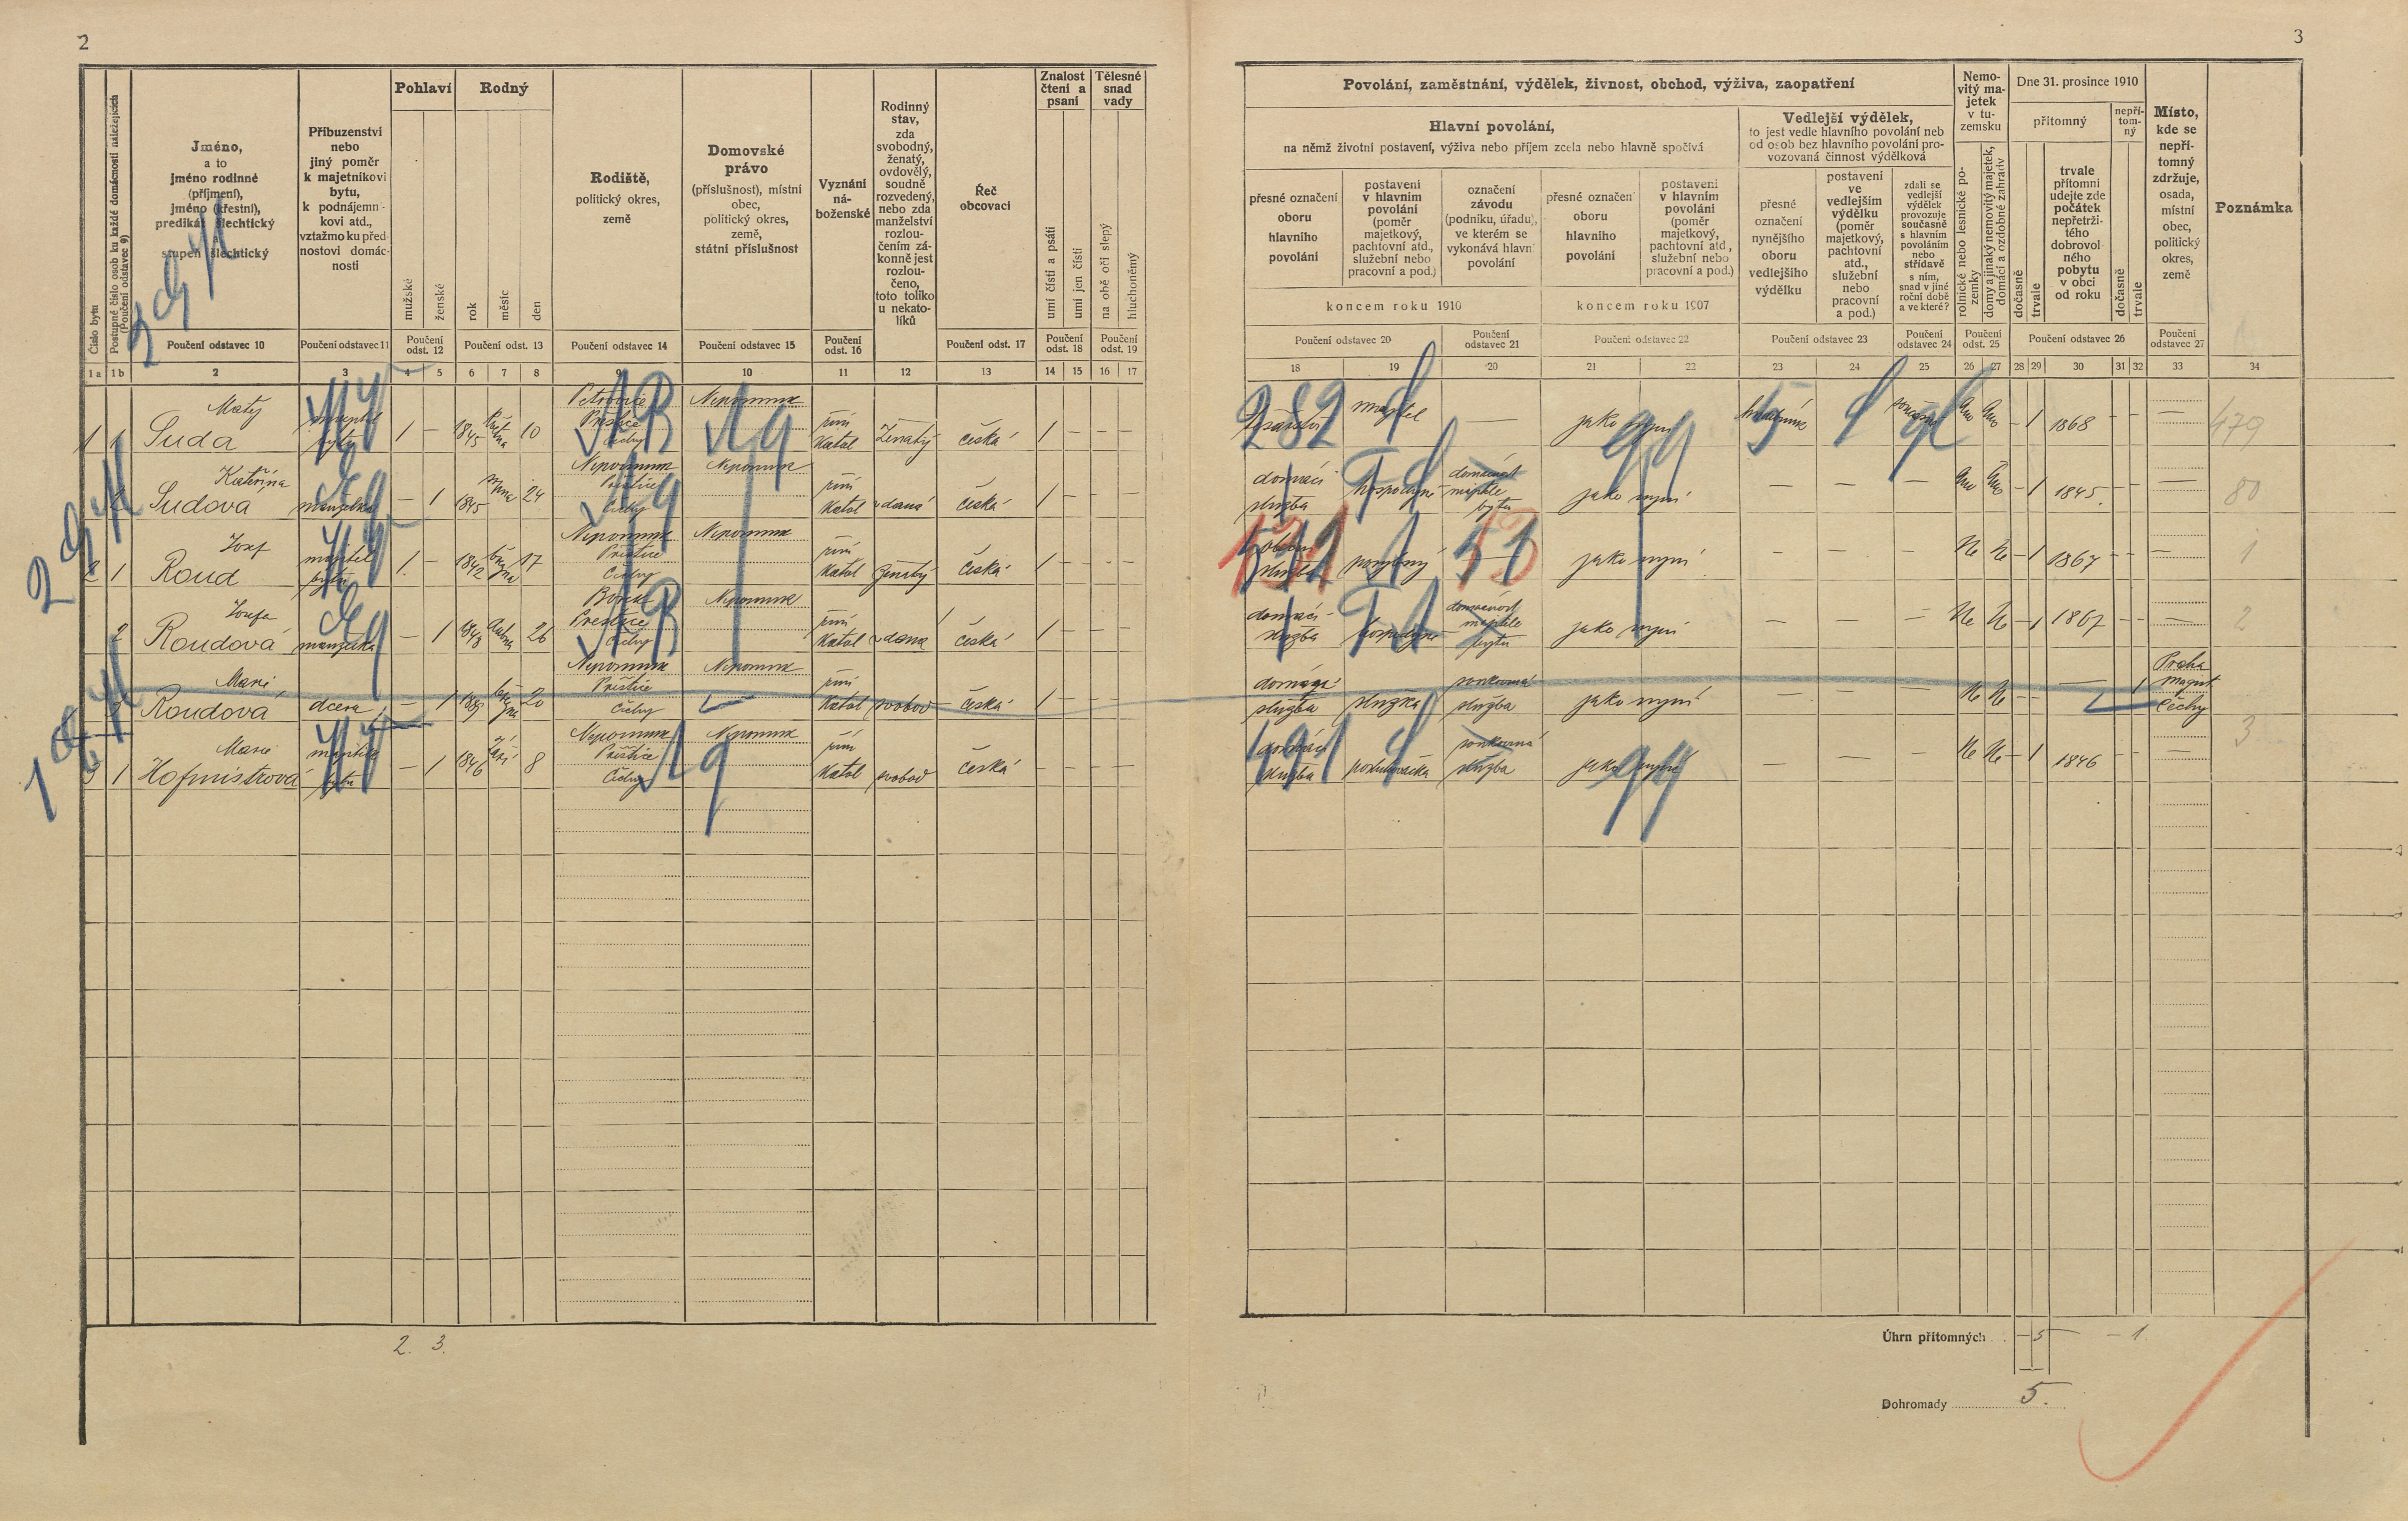 2
3
Číslo bytu
Postupné číslo osob ku každé domácnosti náležejících
(Poučení odstavec 9)
Jméno,
a to
jméno rodinné
(příjmení),
jméno (křestní),
predikát šlechtický
stupeň šlechtický
Příbuzenství
nebo
jiný poměr
k majetníkovi
bytu,
k podnájemní-
kovi atd.,
vztažmo ku před-
nostovi domác-
nosti
Pohlaví
mužské
ženské
Rodný
rok
měsíc
den
Rodiště,
politický okres,
země
Domovské
právo
(příslušnost), místní
obec,
politický okres,
země,
státní příslušnost
Vyznání
ná-
boženské
Rodinný
stav,
zda
svobodný,
ženatý,
ovdovělý,
soudně
rozvedený,
nebo zda
manželství
rozlou-
čením zá-
konně jest
rozlou-
čeno,
toto toliko
u nekato-
líků
Řeč
obcovací
Znalost
čtení a
psaní
umí čísti a psáti
umí jen čísti
Tělesné
snad
vady
na obě oči slepý
hluchoněmý
Poučení odstavec 10
Poučení odstavec 11
Poučení
odst. 12
Poučení odst. 13
Poučení odstavec 14
Poučení odstavec 15
Poučení
odst. 16
Poučení odst. 17
Poučení
odst. 18
Poučení
odst. 19
1a 1b 2 3 4 5 6 7 8 9 10 11 12 13 14 15 16 17
Povolání, zaměstnání, výdělek, živnost, obchod, výživa, zaopatření
Hlavní povolání,
na němž životní postavení, výživa nebo příjem zcela nebo hlavně spočívá
přesné označení
oboru
hlavního
povolání
postavení
v hlavním
povolání
(poměr
majetkový,
pachtovní atd.,
služební nebo
pracovní a pod.)
označení
závodu
(podniku, úřadu),
ve kterém se
vykonává hlavní
povolání
koncem roku 1910
přesné označení
oboru
hlavního
povolání
postavení
v hlavním
povolání
(poměr
majetkový,
pachtovní atd.,
služební nebo
pracovní a pod.)
koncem roku 1907
Vedlejší výdělek,
to jest vedle hlavního povolání neb
od osob bez hlavního povolání pro-
vozovaná činnost výdělková
přesné
označení
nynějšího
oboru
vedlejšího
výdělku
postavení
ve
vedlejším
výdělku
(poměr
majetkový,
pachtovní
atd.,
služební
nebo
pracovní
a pod.)
zdali se
vedlejší
výdělek
provozuje
současně
s hlavním
povoláním
nebo
střídavě
s ním,
snad v jiné
roční době
a ve které?
Nemo-
vitý ma-
jetek
v tu-
zemsku
rolnické nebo lesnické po-
zemky
domy a jinaký nemovitý majetek,
domácí a ozdobné zahrady
Dne 31. prosince 1910
přítomný
dočasně
trvale
trvale
přítomní
udejte zde
počátek
nepřetrži-
tého
dobrovol-
ného
pobytu
v obci
od roku
nepří-
tom-
ný
dočasně
trvale
Místo,
kde se
nepří-
tomný
zdržuje,
osada,
místní
obec,
politický
okres,
země
Poznámka
Poučení odstavec 20
Poučení
odstavec 21
Poučení odstavec 22
Poučení odstavec 23
Poučení
odstavec 24
Poučení
odst. 25
Poučení odstavec 26
Poučení
odstavec 27
18 19 20 21 22 23 24 25 26 27 28 29 30 31 32 33 34
Matěj Petrovice Nepomuk
1 1 Suda 1 — 1845 10 Přeštice Čechy řím katol ženatý česká 1 — — —
282 majitel — jako nyní Ano Ano — 1 1868 — — — 479
Kateřina Nepomuk Nepomuk
2 Sudová manželka — 1 1845 24 Přeštice Čechy řím katol vdaná česká 1 — — —
domácí služba hospodyně domácnost majitele bytu jako nyní — — — Ano Ano — 1 1845 — — — 80
Josef Nepomuk Nepomuk
2 1 Roud majitel bytu 1 — 1842 března 17 Přeštice Čechy řím katol ženatý česká 1 — — —
služba jako nyní — — — Ne Ne — 1 1867 — — — 1
Josefa Nepomuk
2 Roudová manželka — 1 1848 dubna 26 Přeštice Čechy řím katol vdaná česká 1 — — —
domácí služba hospodyně domácnost majitele bytu jako nyní — — — Ne Ne — 1 1867 — — — 2
Marie Nepomuk Nepomuk
3 Roudová dcera — 1 1889 března 20 Přeštice Čechy řím katol svobod česká 1 — — —
domácí služba služka soukromá služba jako nyní — — — Ne Ne — — — 1 Praha Čechy
Marie Nepomuk Nepomuk
3 1 Hofmistrová bytu — 1 1846 září 8 Přeštice Čechy řím katol svobod česká — — — —
domácí služba posluhovačka soukromá služba jako nyní — — — Ne Ne — 1 1846 — — — 3
2. 3.
Úhrn přítomných — 5 — 1.
Dohromady 5.